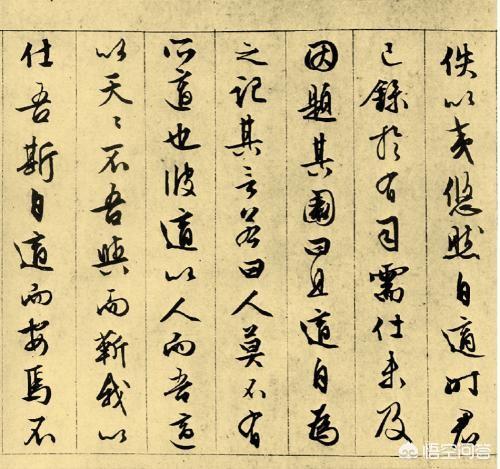 佚以夷悠然自適時君
已錄於有司需仕未及
因題其園曰且適自為
之記其言若曰人莫不有
所適也彼適以人而吾適
以天〻不吾與而靳我以
仕吾斯自適而安焉不
悟空问答